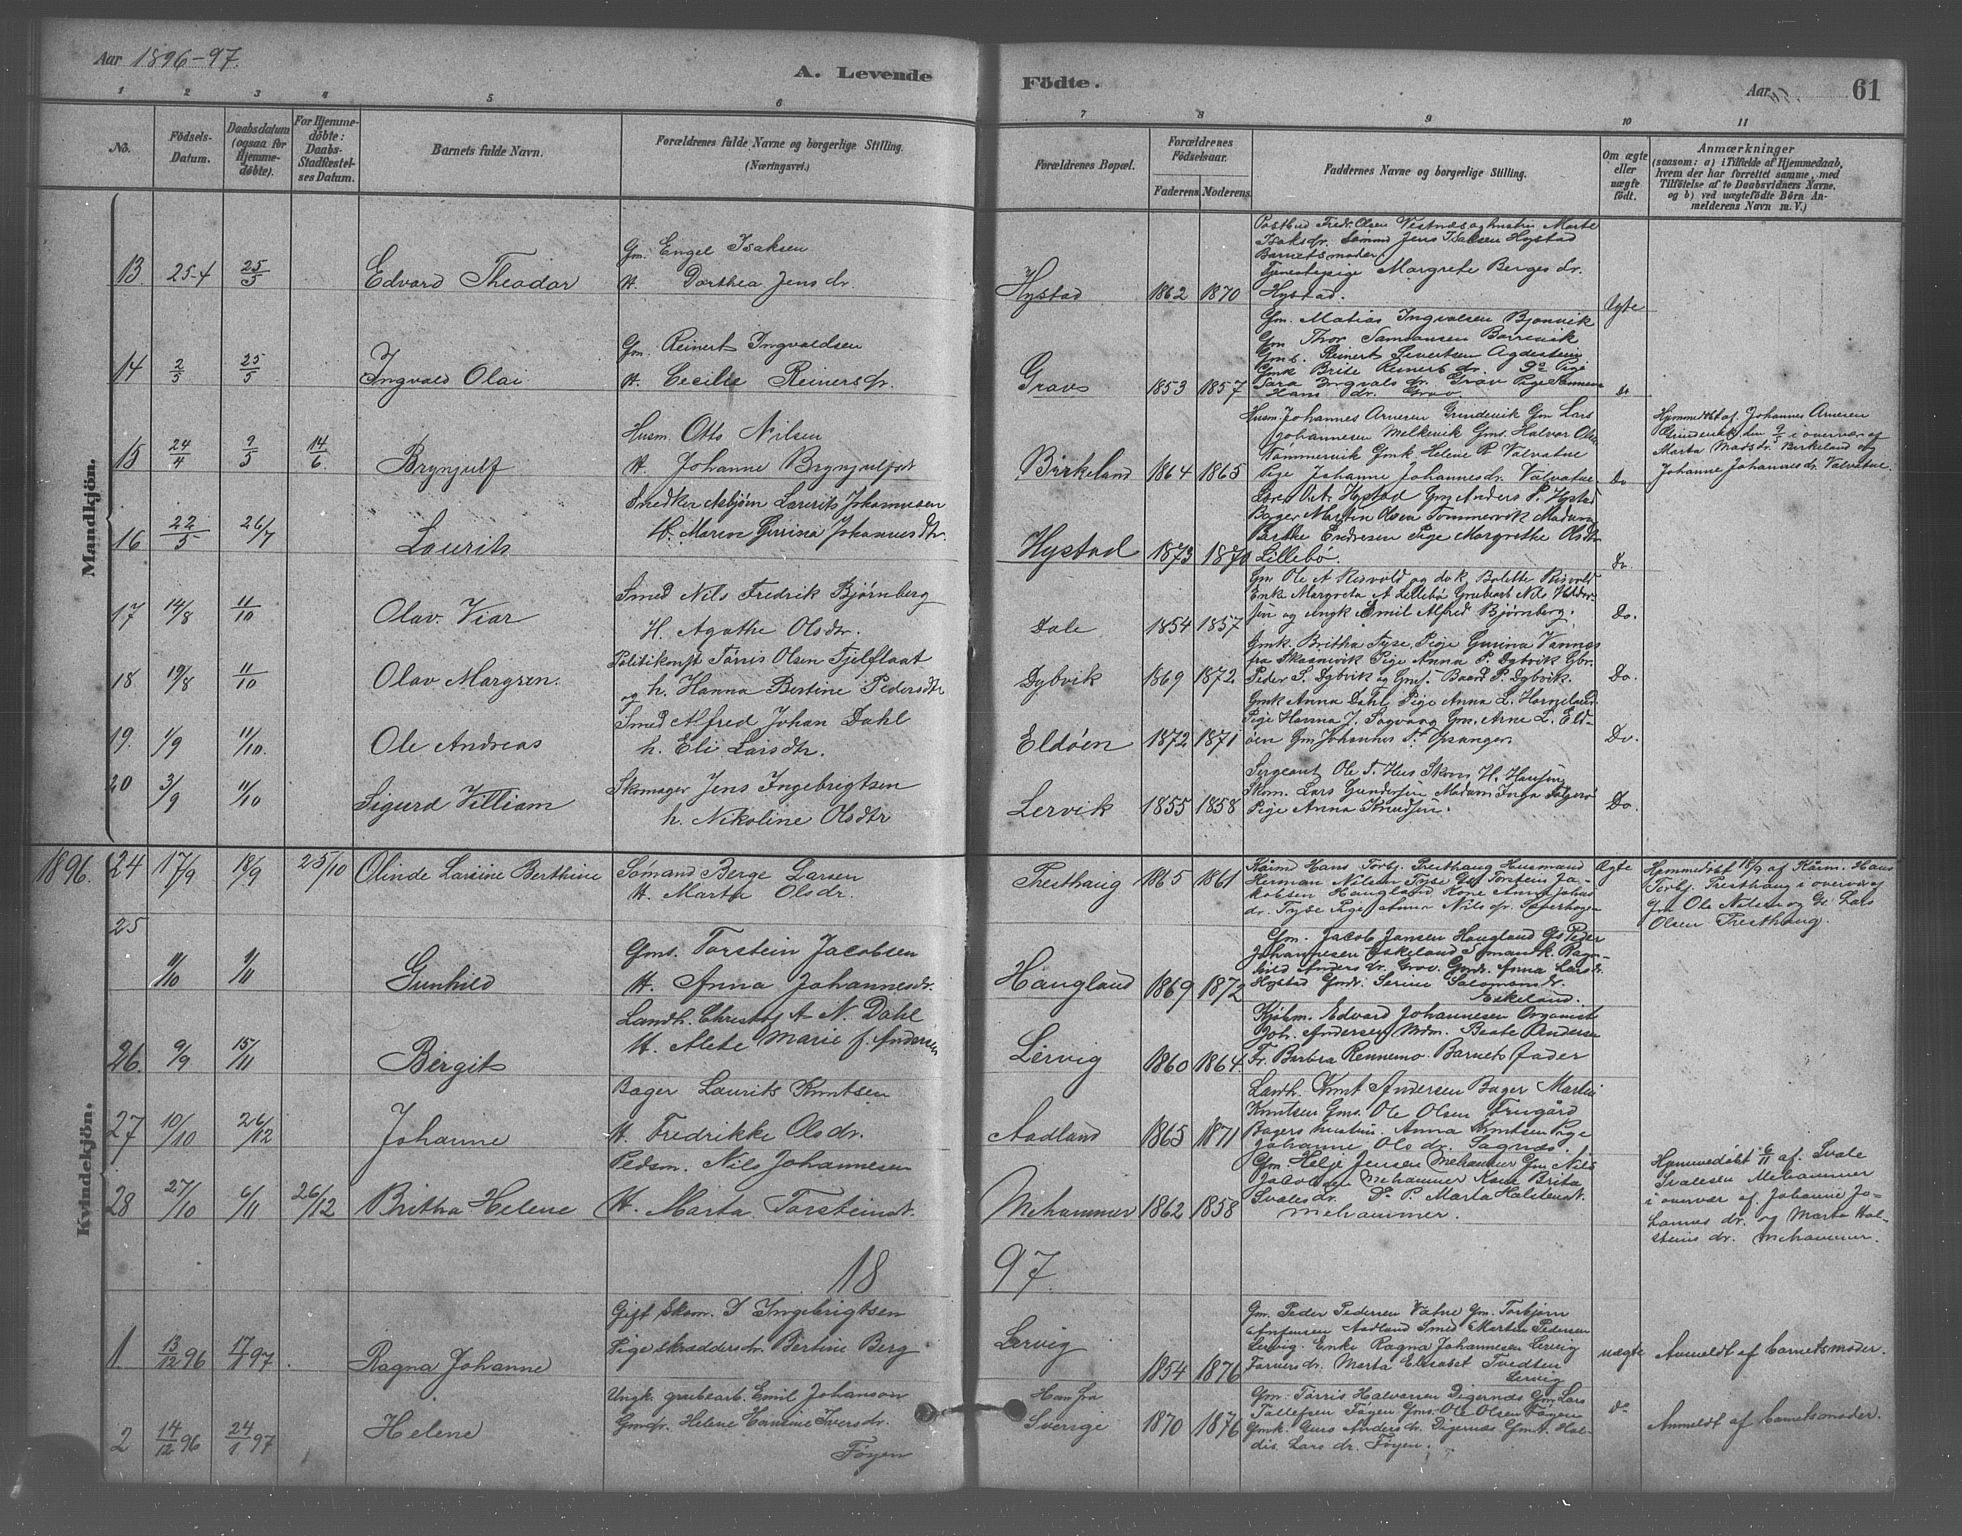 Aar 1896-97.
A. Levende
Födte.
Aar
61
1 2 3 4 5 6 7 8 9 10 11
No.
Födsels-
Datum.
Daabsdatum
(ogsaa for
Hjemme-
døbte).
For Hjemme-
døbte:
Daabs-
Stadfæstel-
ses Datum.
Barnets fulde Navn.
Forældrenes fulde Navne og borgerlige Stilling.
(Næringsvei.)
Forældrenes Bopæl.
Forældrenes
Födselsaar.
Faderens. Moderens.
Faddernes Navne og borgerlige Stilling.
Om ægte
eller
uægte
födt.
Anmærkninger
(saasom: a) i Tilfælde af Hjemmedaab,
hvem der har forrettet samme, med
Tilföielse af to Daabsvidners Navne,
og b) ved uægtefödte Börn An-
melderens Navn m. V.)
Mandkjön.
13. 25-4 25/5 Edvard Theodor
Gm. Engel Isaksen
H. Dorthea Jensdr.
Hystad 1862 1870
Postbud Fredr. Olsen Vestnæs og hustru Marte
Isaksdr. Sømand Jens Isaksen Hystad
Barnets moder.
Tjenestepige Margrete Bergesdr.
Hystad.
Ægte
14 2/5 25/5 Ingvald Olai
Gm. Reinert Ingvaldsen
H. Cecilie Reinersdr.
Grov 1853 1857
Gm. Matias Ingvalsen Bjonvik
Gm Thor Samsonsen Borrevik
Gms. Reinert Sivertsen Agdestein
Gmk Brite Reinersdr. Do Pige
Sara Ingvalsdr. Grov Pige
Hansdr. Grov.
Do
15 24/4 9/5 14/6 Brynjulf
Husm. Otto Nilsen
H. Johanne Brynjulfsdt
Birkeland 1864 1865
Husm. Johannes Arnesen Grindevik Gm Lars
Johannesen Melkevik Gms. Halvor Olsen
Tømmervik Gmk Helene R Valvatne
Pige Johanne Johannesdr. Valvatne
Do
Hjemmedøbt af Johannes Arnesen
Grindevik den 9/5 i overvær af
Marta Madsdr. Birkeland og
Johanne Johannesdr. Valvatne.
16 22/5 26/7 Laurits
Snedker Asbjørn Laurits Johannesen
H. Maren Gurina Johannesdtr.
Hystad 1873 1870
Lars O.A. Hystad Gm Anders P. Hystad
Bager Martin Olsen Tommervik Madam
Endresen Pige Margrethe Olsdtr
Lillebø.
Do
17 14/8 11/10 Olav Viar
Smed Nils Fredrik Bjørnberg
H. Agathe Olsdtr.
Dale 1854 1857
Gm Ole A Risvold og do k. Bolette Risvold
Enke Margreta A Lillebø Grubearb Nils
sen og Ungk Emil Alfred Bjørnberg.
Do.
18 19/8 11/10 Olav Margren.
Politikonst Tørris Olsen Fjelflaat
og h. Hanna Bertine Pedersdtr
Dybvik 1869 1872
Gmk. Britha Tyse, Pige Gurina Vannes
fra Skaanevik Pige Anna P. Dybvik Gbr.
Peder S. Dybvik og Gms. Baard P. Dybvik.
Do.
19. 1/9 11/10. Ole Andreas
Smed Alfred Johan Dahl
h. Eli Larsdtr.
Eldøen 1872 1871
Gmk Anna Dahl, Pige Anna L. Haugland
Pige Hanna J. Sagvaag Gm. Arne L. Eld-
øen Gm Johannes P. Opsanger.
Do.
20 3/9 11/10 Sigurd Villiam
Skomager Jens Ingebrigtsen
h. Nikoline Olsdtr
Lervik 1855 1858
Sergeant Ole T. Hus Skom. H. Hansen
Skom. Lars Gundersen Madam Inga
Pige Anna Knudsen.
Do.
Kvindekjön.
1896. 24 17/9 18/9 25/10 Olinde Larsine Berthine
Sømand Berge Larsen
H. Marta Olsdr.
Præsthaug 1865 1861
Kaarm Hans Torbj. Præsthaug Husmand
Herman Nilsen Tyse Gs Torstein Ja-
kobsen Haugland Kone Anna Johns
dr. Tyse Pige Anna Nilsdr.
Ægte
Hjemmedøbt 18/9 af Kaarm. Hans
Torbj. Præsthaug i overvær af
Gm Ole Nilsen og Gs Lars
Olsen Præsthaug.
25 11/10 1/11 Gunhild
Gms. Torstein Jacobsen
H. Anna Johannesdr.
Haugland 1869 1872
Gm. Jacob Jansen Haugland Gs Peder
Johannesen Eskeland Sømand k. Ragn-
hild Andersdr. Grov. Gmdr. Anna Larsdr.
Hystad Gmdr. Serine Salomonsdr.
Eskeland.
26. 9/9 15/11 Birgit
Landh. Christof A N. Dahl
H. Alete Marie f. Andersen
Lervig 1860 1864
Kjøbm. Edvard Johannesen Organist
Joh. Andersen Mdm. Beate Andersen
Fr. Barbra Rennemo. Barnets fader
27 10/10 26/12 Johanne
Bager Laurits Knutsen
H. Fredrikke Olsdr.
Aadland 1865 1871
Landh. Knut Andersen Bager Martin
Knutsen Gms. Ole Olsen Frugård
Bagers hustru Anna Knutsen Pige
Johanne Olsdr. Sagnæs.
28 27/10 6/11 26/12 Britha Helene
Pedsm. Nils Johannesen
H. Marta Torsteinsdt.
Mehammer 1862 1858
Gm. Helje Jensen Mehammer Gm Nils
Jacobsen Mehammer Kone Brita
Svalesdr. Do P. Marta Halstensdt.
Mehammer.
Hjemmedøbt 6/11 af Svale
Svalesen Mehammer
i overvær af Johanne Jo-
hannesdr. og Marta Hal-
steinsdr. Mehammer.
18 97.
1 13/12 96 17/1 97 Ragna Johanne
Gift Skom. J Ingebrigtsen
Pige skrædderske Bertine Berg
Lervig 1854 1876
Gm. Peder Pedersen Vatne Gm. Torbjørn
Aadland Smed Martin Pedersen
Lervig. Enke Ragna Johannesen Lervig
Marta Elisabet Tvedten
Lervig
uægte
Anmeldt af barnetsmoder.
2 14/12 96 24/1 97 Helene
Ungk. grubearb. Emil Johanson
Gmdr. Helene Hansine Iversdr.
Føyen
Han fra
Sverige 1870 1876
Gm. Tørris Halvorsen Digernæs Gm Lars
Tollefsen Føyen Gms. Ole Olsen Føyen
Gmk. Guro Andersdr. Digernæs. Gmdt. Hal-
dis Larsdr. Føyen.
do
Anmeldt af barnetsmoder.